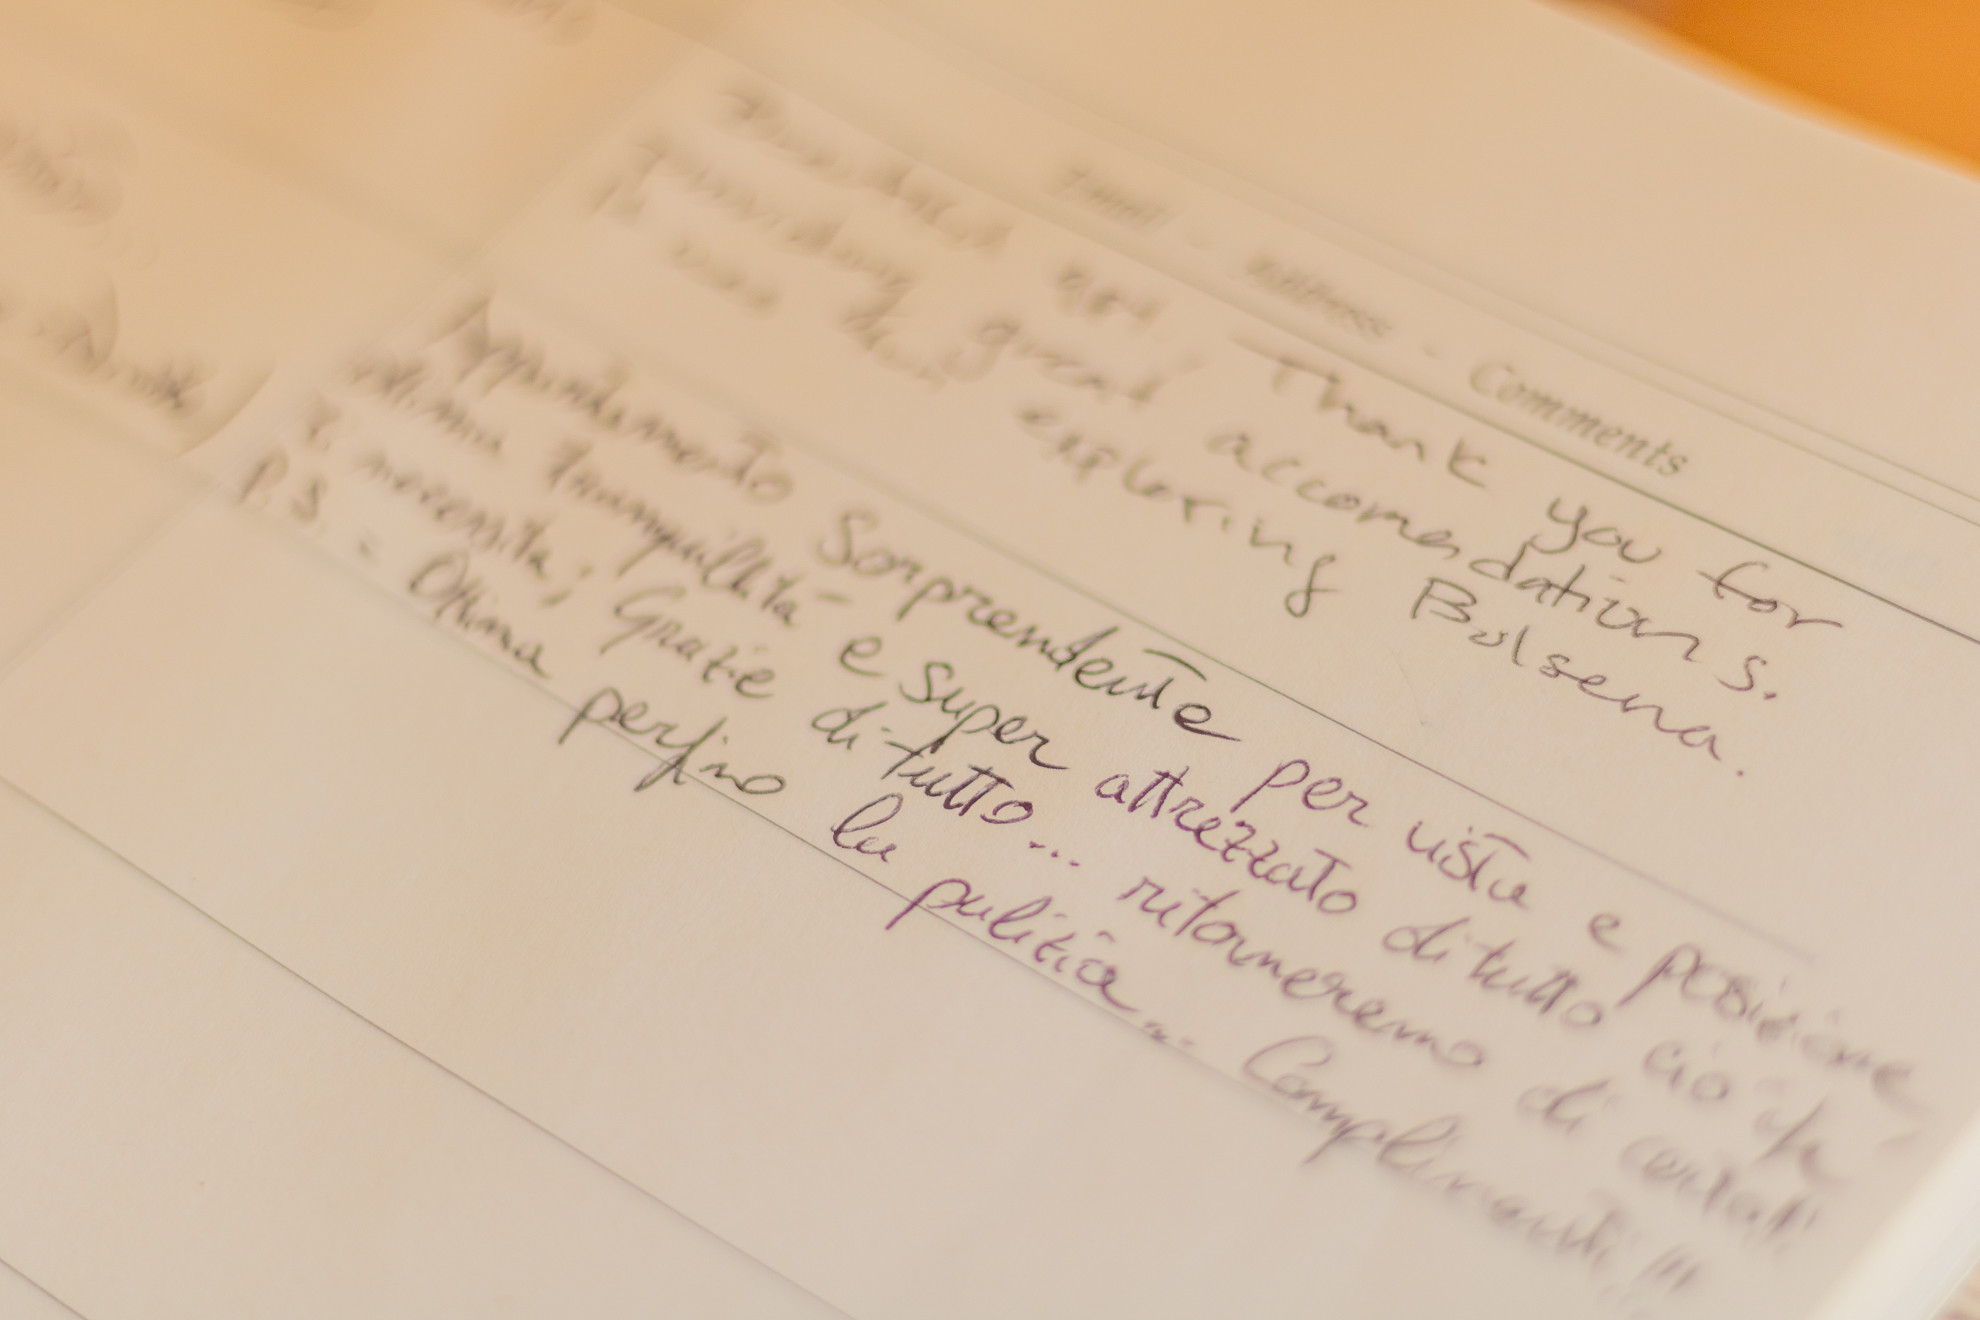 Email - Address - Comments
you! Thank you for
providing great accomendations.
exploring Bolsena.
Appartamento Sorprendente per vista e posizione
ottima tranquillità e super attrezzato di tutto ciò che
necessita; Grazie di tutto... ritorneremo di certo!!
P.S. - Ottima perfino la pulizia... Complimenti!!!